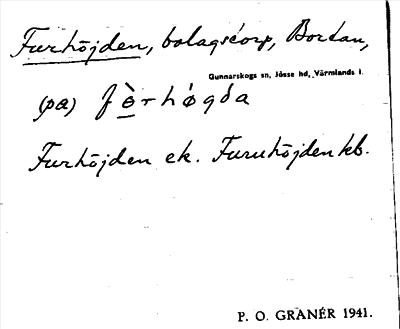 Furhöjden, bolagstorp, Bortan,
Gunnarskogs sn, Jösse hd, Värmlands l.
(pa)
Furhöjden ek. Furuhöjden kb.
P. O. GRANÉR 1941.